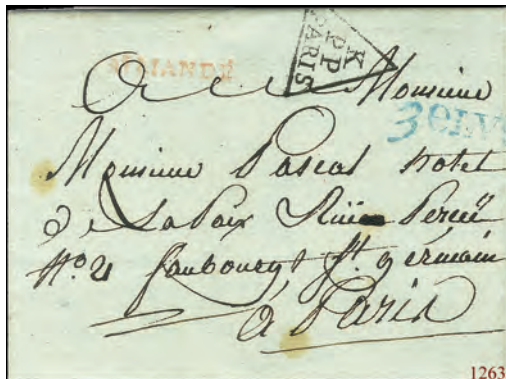 K
PP
PARIS
A Monsieur
Monsieur Pascal hotel
de La Paix Rüe
No 21 faubourgt St germain
à Paris
1263